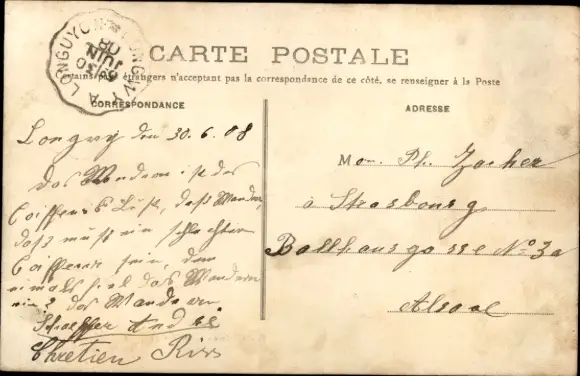 CARTE POSTALE
Certains pays étrangers n'acceptant pas la correspondance de ce côté, se renseigner à la Poste
LONGUYON A LONGWY
30 JUIN 08
CORRESPONDANCE
Longwy den 30.6.08
Das Wandern ist des
Coiffeurs Lust, das Wandern,
das muß ein schlechter
Coiffeur sein, dem
niemals fiel das Wandern
ein, das Wandern
Schaeffer
Chretien Riss
ADRESSE
Mon. Ph. Zacher
à Strasbourg
Ballhausgasse No 3a
Alsace